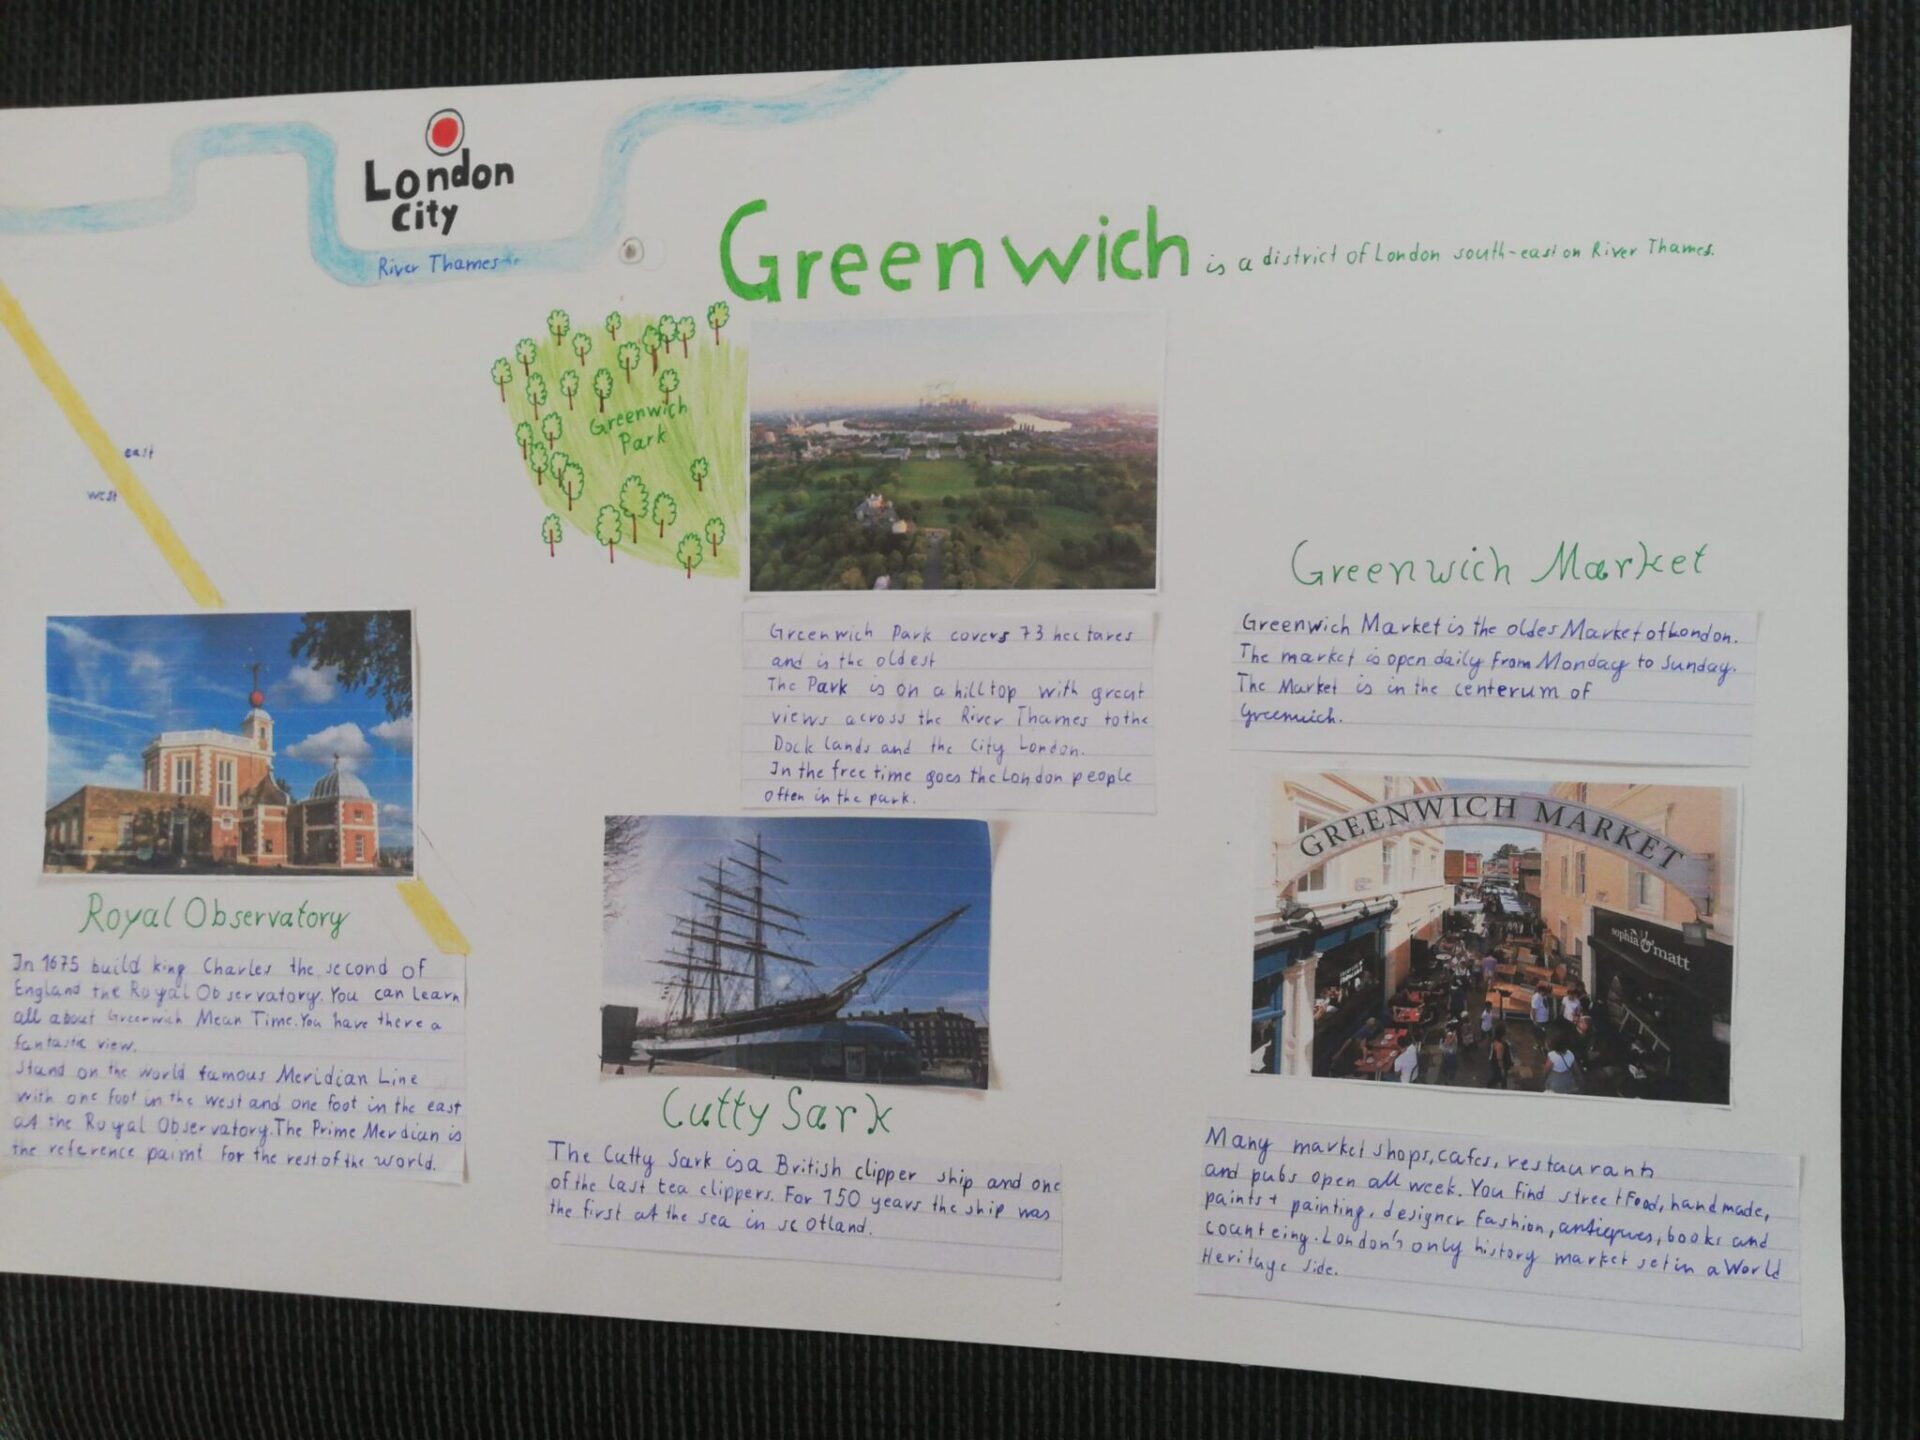 London
City
River Thames
Greenwich is a district of London south-east on River Thames.
Greenwich
Park
east
west
Royal Observatory
In 1675 build king Charles the second of
England the Royal Observatory. You can learn
all about Greenwich Mean Time. You have there a
fantastic view.
Stand on the world famous Meridian Line
with one foot in the west and one foot in the east
at the Royal Observatory. The Prime Merdian is
the reference paint for the rest of the world.
Greenwich Park covers 73 hectares
and is the oldest
The Park is on a hilltop with great
views across the River Thames to the
Dock lands and the City London.
In the free time goes the London people
often in the park.
Cutty Sark
The Cutty Sark is a British clipper ship and one
of the last tea clippers. For 150 years the ship was
the first at the sea in scotland.
Greenwich Market
Greenwich Market is the oldes Market of London.
The market is open daily from Monday to Sunday.
The Market is in the centerum of
Greenwich.
GREENWICH MARKET
sophia & matt
Many market shops, cafes, restaurants
and pubs open all week. You find street food, handmade,
paints + painting, designer fashion, antiques, books and
counteing. London's only history market set in a World
Heritage side.